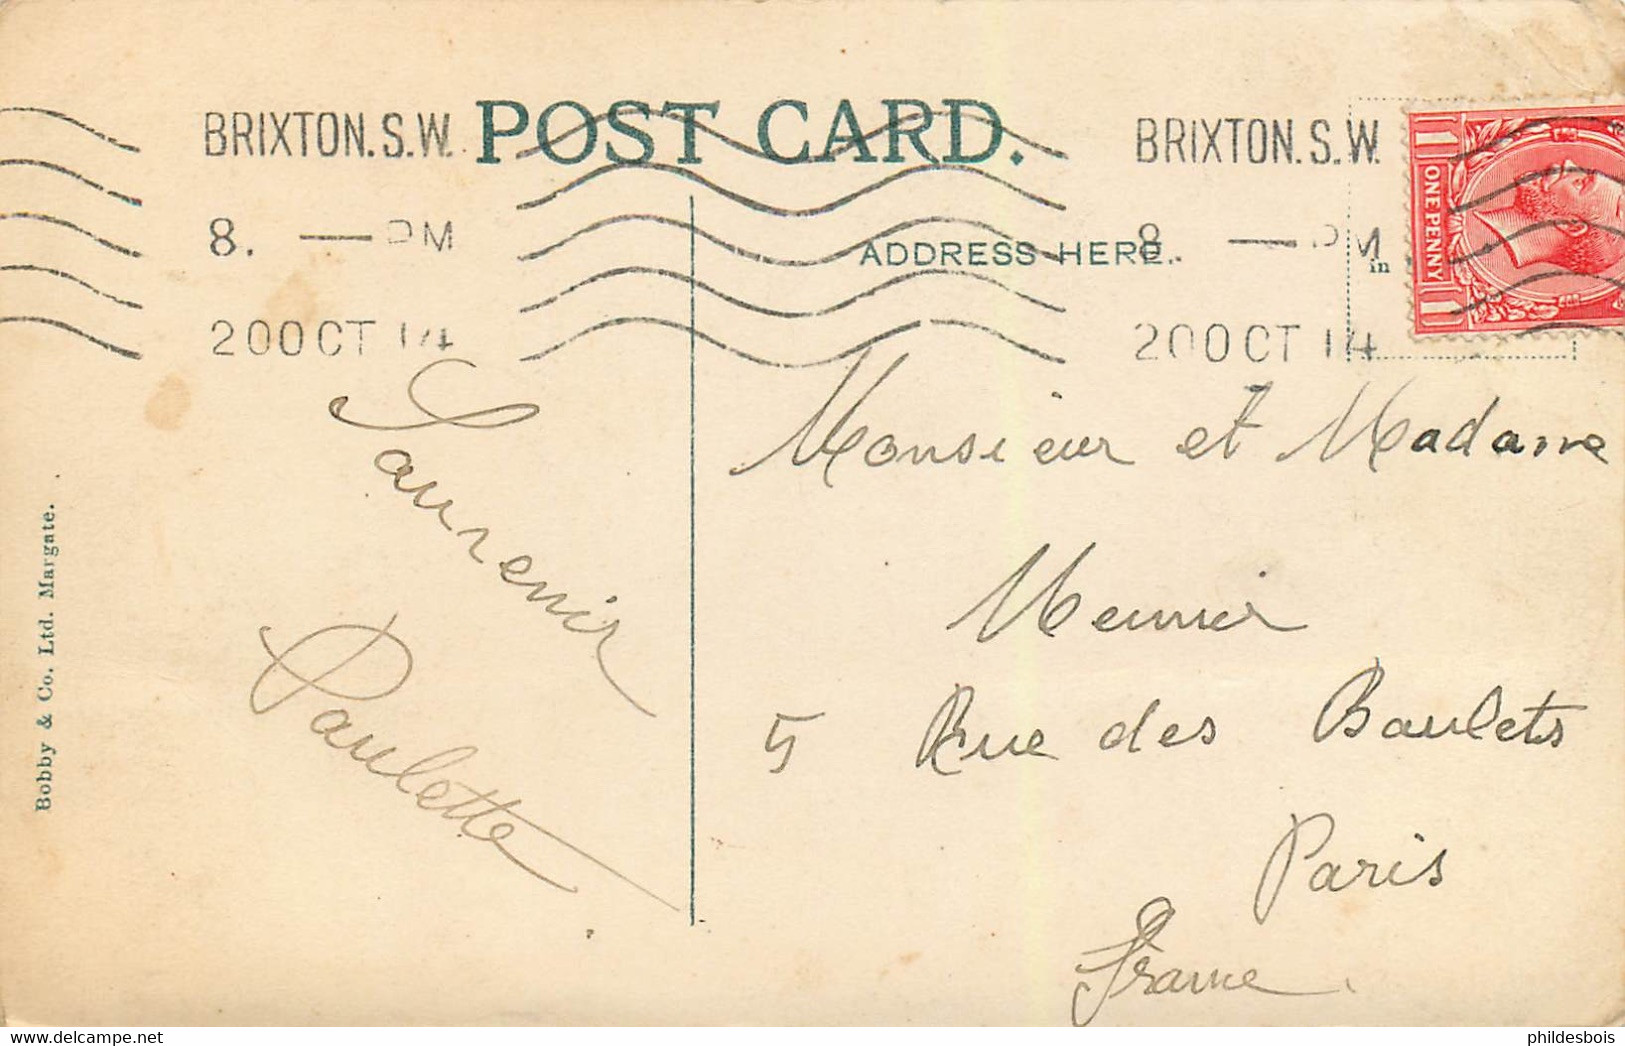 POST CARD.
BRIXTON. S.W.
8. — PM
20 OCT 14
BRIXTON. S.W.
8 — PM
20 OCT 14
ADDRESS HERE.
in
ONE PENNY
1 1
Souvenir
Paulette
Monsieur et Madame
Meunier
5 Rue des Baulets
Paris
France.
Bobby & Co. Ltd. Margate.
delcampe.net
phildesbois